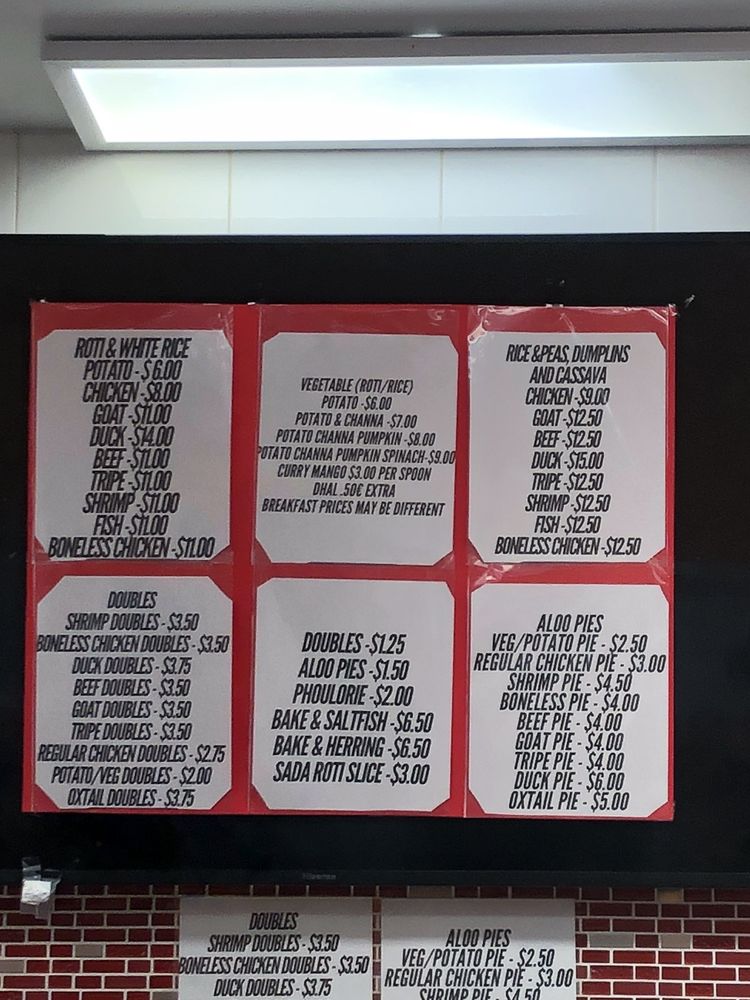 ROTI & WHITE RICE
POTATO - $6.00
CHICKEN -$8.00
GOAT -$11.00
DUCK -$14.00
BEEF -$11.00
TRIPE -$11.00
SHRIMP -$11.00
FISH -$11.00
BONELESS CHICKEN -$11.00
VEGETABLE (ROTI/RICE)
POTATO -$6.00
POTATO & CHANNA -$7.00
POTATO CHANNA PUMPKIN -$8.00
POTATO CHANNA PUMPKIN SPINACH-$9.00
CURRY MANGO $3.00 PER SPOON
DHAL .50¢ EXTRA
BREAKFAST PRICES MAY BE DIFFERENT
RICE &PEAS, DUMPLINS
AND CASSAVA
CHICKEN -$9.00
GOAT -$12.50
BEEF -$12.50
DUCK -$15.00
TRIPE -$12.50
SHRIMP -$12.50
FISH -$12.50
BONELESS CHICKEN -$12.50
DOUBLES
SHRIMP DOUBLES - $3.50
BONELESS CHICKEN DOUBLES - $3.50
DUCK DOUBLES - $3.75
BEEF DOUBLES - $3.50
GOAT DOUBLES - $3.50
TRIPE DOUBLES - $3.50
REGULAR CHICKEN DOUBLES - $2.75
POTATO/VEG DOUBLES - $2.00
OXTAIL DOUBLES - $3.75
DOUBLES -$1.25
ALOO PIES -$1.50
PHOULORIE -$2.00
BAKE & SALTFISH -$6.50
BAKE & HERRING -$6.50
SADA ROTI SLICE -$3.00
ALOO PIES
VEG/POTATO PIE - $2.50
REGULAR CHICKEN PIE - $3.00
SHRIMP PIE - $4.50
BONELESS PIE - $4.00
BEEF PIE - $4.00
GOAT PIE - $4.00
TRIPE PIE - $4.00
DUCK PIE - $6.00
OXTAIL PIE - $5.00
Hisense
DOUBLES
SHRIMP DOUBLES - $3.50
BONELESS CHICKEN DOUBLES - $3.50
DUCK DOUBLES - $3.75
ALOO PIES
VEG/POTATO PIE - $2.50
REGULAR CHICKEN PIE - $3.00
SHRIMP PIE - $4.50